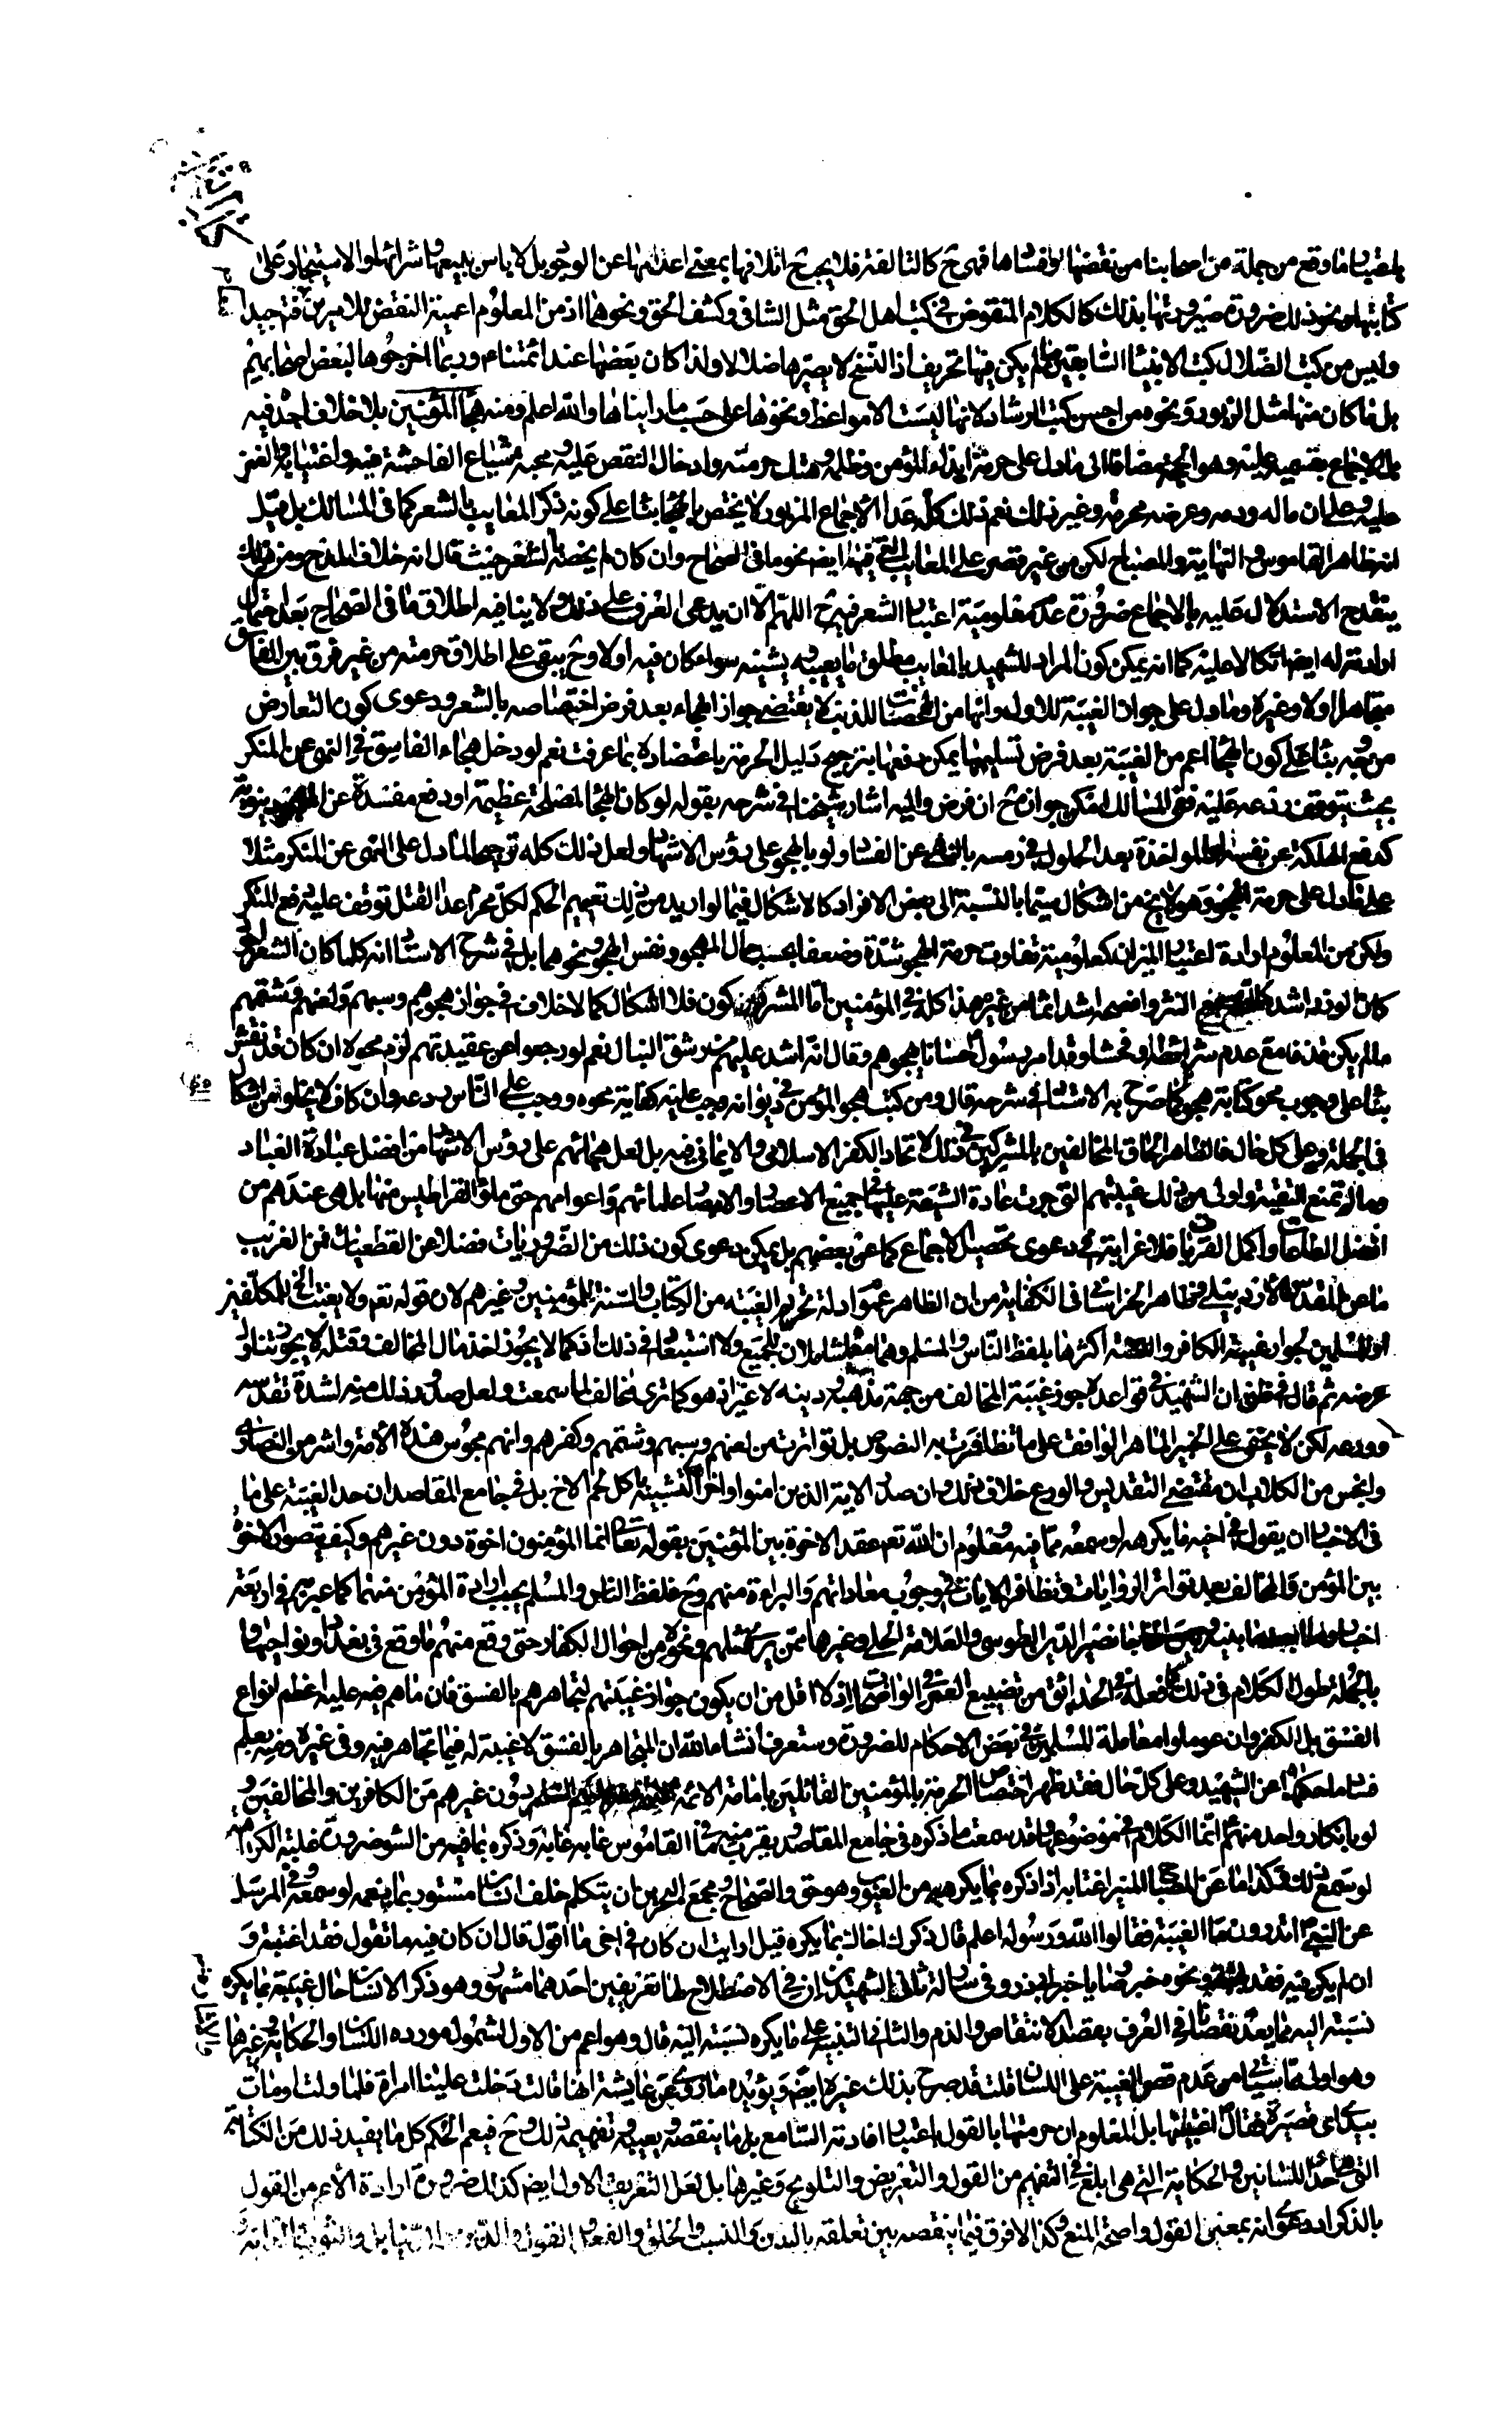 باعتبار ما وقع من جملة من اصحابنا من نقضها وافسادها فهى ح كالتالفة فلا يجب ح اتلافها بمعنى اعدامها عن الوجود بل لا باس ببيعها وشرائها والاستيجار على
كتابتها ونحو ذلك ضرورة صيرورتها بذلك كالكلام المنقوض فى كتب اهل الحق مثل الشافى وكشف الحق ونحوهما اذ من المعلوم اعمية النقض للامرين فتجب جيدا
وليس من كتب الضلال كتب الانبياء السابقين ما لم يكن فيها تحريف اذ النسخ لا يصيرها ضلالا ولذا كان بعضها عند ائمتنا وربما اخرجوها لبعض اصحابهم
بل ما كان منها مثل الزبور ونحوه من احسن كتب الرشاد لانها ليست الا مواعظ ونحوها على حسب ما رايناها والله اعلم ومنه هجاء المؤمنين بلا خلاف اجده فيه
بل الاجماع بقسميه عليه وهو الحجة مضافا الى ما دل على حرمة ايذاء المؤمن وظلمه وهتك حرمته وادخال النقص عليه ومحبة شياع الفاحشة فيه واغتيابه والغمز
عليه وعلى ان ماله ودمه وعرضه محرمة وغير ذلك نعم ذلك كله عدا الاجماع المزبور لا يختص بالهجاء بناء على كونه ذكر المعايب بالشعر كما فى المسالك بل قيل
انه ظاهر القاموس والنهاية والمصباح لكن من غير قصر على المعايب التى فيها ايضا نحو ما فى الصحاح وان كان لم يخصه بالشعر حيث قال انه خلاف المدح ومن ذلك
ينقدح الاستدلال عليه بالاجماع ضرورة عدم معلومية اعتبار الشعر فيه ح اللهم الا ان يدعى العرف على ذلك ولا ينافيه اطلاق ما فى الصحاح بعد احتمال
ارادته له ايضا اتكالا عليه كما انه يمكن كون المراد للشهيد بالمعايب مطلق ما يعيبه ويشينه سواء كان فيه اولا وح يبقى على اطلاق حرمته من غير فرق بين الفاسق
متجاهرا اولا وغيره وما دل على جواز الغيبة للاول وانها من المحسنات للذين لا يقتضى جواز الهجاء بعد فرض اختصاصه بالشعر ودعوى كون التعارض
من وجه بناء على كون الهجاء اعم من الغيبة بعد فرض تسليمها يمكن دفعها بترجيح دليل الحرمة باعتضاده بما عرفت نعم لو دخل هجاء الفاسق فى النهى عن المنكر
بحيث يتوقف ردعه عليه ففى المسالك امكن جوازه ح ان فرض واليه اشار شيخنا فى شرحه بقوله لو كان الهجاء لمصلحة عظيمة او دفع مفسدة عن
كدفع الهلكة عن نفسه او المواخذة بعد الحلول فى رمسه بالنهى عن الفساد ولو بالهجو على رؤس الاشهاد ولعل ذلك كله ترجيحا لما دل على النهى عن المنكر مثلا
على ما دل على حرمة الهجو وهو لا يخ من اشكال سيما بالنسبة الى بعض الافراد كالاشكال فيما لو اريد من ذلك تعميم الحكم لكل محرم عدا القتل توقف عليه رفع المنكر
ولكن من المعلوم ارادة اعتبار الميزان كمعلومية تفاوت حرمة الهجو شدة وضعفا بحسب حال المهجو ونفس الهجو ونحوهما بل فى شرح الاستاد انه كلما كان الشعر اجود
كان الوزر اشد النثر واضحه اشد اثما من غيره هذا كله فى المؤمنين اما المشركون فلا اشكال كما لا خلاف فى جواز هجوهم وسبهم ولعنهم وشتمهم
ما لم يكن قذفا مع عدم شرائطه او فحشا وقد امر رسول الله حسانا بهجوهم وقال انه اشد عليهم من رشق النبال نعم لو رجعوا عن عقيدتهم لزم محوه ان كان قد نقش
بناء على وجوب محو كتابة هجو كما صرح به الاستاد فى شرحه قال ومن كتب هجو المؤمن فى ديوانه وجب عليه كفاية محوه ووجب على الناس ردعه وان كان لا يخلو من اشكال
فى الجملة وعلى كل حال فالظاهر الحاق المخالفين بالمشركين فى ذلك لاتحاد الكفر الاسلامى والايمانى فيه بل لعل هجائهم على رؤس الاشهاد من افضل عبادة العباد
وما لم تمنع التقية واولى من ذلك غيبتهم التى جرت عادة الشيعة عليها فى جميع الاعصار والامصار علمائهم واعوامهم حتى ملئوا القراطيس منها بل هى عندهم من
افضل الطاعات واكمل القربات فلا غرابة فى دعوى تحصيل الاجماع كما عن بعضهم بل يمكن دعوى كون ذلك من الضروريات فضلا عن القطعيات فمن الغريب
ما عن المقدس الاردبيلى وظاهر الخراسانى فى الكفاية من ان الظاهر عموم ادلة تحريم الغيبة من الكتاب والسنة للمؤمنين وغيرهم لان قوله تع ولا يغتب الخ للمكلفين
او المسلمين لجواز غيبة الكافر والسنة اكثرها بلفظ الناس والمسلم وهما معا شاملان للجميع ولا استبعاد فى ذلك اذ كما لا يجوز اخذ مال المخالف وقتله لا يجوز تناول
عرضه ثم قال وظنى ان الشهيد فى قواعده جوز غيبة المخالف من جهة مذهبه ودينه لا غير اذ هو كما ترى مخالف لما سمعت ولعل صدور ذلك منه لشدة تقدسه
وورعه لكن لا يخفى على الخبير الماهر الواقف على ما تظافرت به النصوص بل تواترت من لعنهم وسبهم وشتمهم وكفرهم وانهم مجوس هذه الامة واشر من النصارى
وانجس من الكلاب ان مقتضى التقديس والورع خلاف ذلك وان صدر الاية الذين امنوا واخرها التشبيه باكل لحم الاخ بل فى جامع المقاصد ان حد الغيبة على ما
فى الاخبار ان يقول فى اخيه ما يكرهه لو سمعه مما فيه ومعلوم ان الله تع عقد الاخوة بين المؤمنين بقوله تعالى انما المؤمنون اخوة دون غيرهم وكيف يتصور الاخوة
بين المؤمن والمخالف بعد تواتر الروايات وتظافر الايات فى وجوب معاداتهم والبراءة منهم وح فلفظ الناس والمسلم يجب ارادة المؤمن منهما كما عبر به فى اربعة
اخبار نصير الدين الطوسى والعلامة الحلى وغيرهما ممن يرى قتلهم ونحوه من احوال الكفار حتى وقع منهم ما وقع فى بغداد ونواحيها و
بالجملة طول الكلام فى ذلك كما فعله فى الحدائق من تضييع العمر فى الواضحات اذ لا اقل من ان يكون جواز غيبتهم لتجاهرهم بالفسق فان ما هم فيه عليه اعظم انواع
الفسق بل الكفر وان عوملوا معاملة المسلمين فى بعض الاحكام للضرورة وستعرف انشاء الله ان المتجاهر بالفسق لا غيبة له فيما تجاهر فيه وفى غيره ومنه يعلم
فساد ما حكاه عن الشهيد وعلى كل حال فقد ظهر اختصاص الحرمة بالمؤمنين القائلين بامامة الائمة دون غيرهم من الكافرين والمخالفين و
لو بانكار واحد منهم انما الكلام فى موضوعها وقد سمعت ما ذكره فى جامع المقاصد ويقرب منه ما فى القاموس غابه عابه وذكره بما فيه من السوء ضرورة غلبة الكراهة
لو سمع ذلك وكذا ما عن المصباح المنير اغتابه اذا ذكره بما يكرهه من العيوب وهو حق والصحاح ومجمع البحرين ان يتكلم خلف انسان مستور بما يغمه لو سمعه وفى المرسل
عن النبى اتدرون ما الغيبة فقالوا الله ورسوله اعلم قال ذكرك اخاك بما يكره قيل ارايت ان كان فى اخى ما اقول قال ان كان فيه ما تقول فقد اغتبته و
ان لم يكن فيه فقد بهته ونحوه خبر وصايا خبر ابى ذر وفى رسالة ثانى الشهيدين ان فى الاصطلاح لها تعريفين احدهما مشهور وهو ذكر الانسان حال غيبته بما يكره
نسبته اليه مما يعد نقصانا فى العرف بقصد الانتقاص والذم والثانى التنبيه على ما يكره نسبته اليه قال وهو اعم من الاول لشمول مورده اللسان والحكاية وغيرها
وهو اولى لما سيأتى من عدم قصر الغيبة على اللسان قلت قد صرح بذلك غيره ايضا ويؤيده ما روى عن عايشة انها قالت دخلت علينا امرأة فلما ولت اومأت
بيدى اى قصيرة فقال اغتبتها بل المعلوم ان حرمتها بالقول باعتبار افادته السامع بل ما ينقصه ويعيبه وتفهيمه ذلك وح فيعم الحكم كل ما يفيد ذلك من الكتابة
التى هى احد اللسانين والحكاية التى هى ابلغ فى التفهيم من القول والتعريض والتلويح وغيرها بل لعل التعريف الاول ايضا كذلك ضرورة ارادة الاعم من القول
بالذكر ودعوى انه بمعنى القول واضحة المنع وكذا لا فرق فيما ينقصه بين تعلقه بالبدن والنسب والخلق والفعل والقول والدين والدنيا بل والثوب والدابة